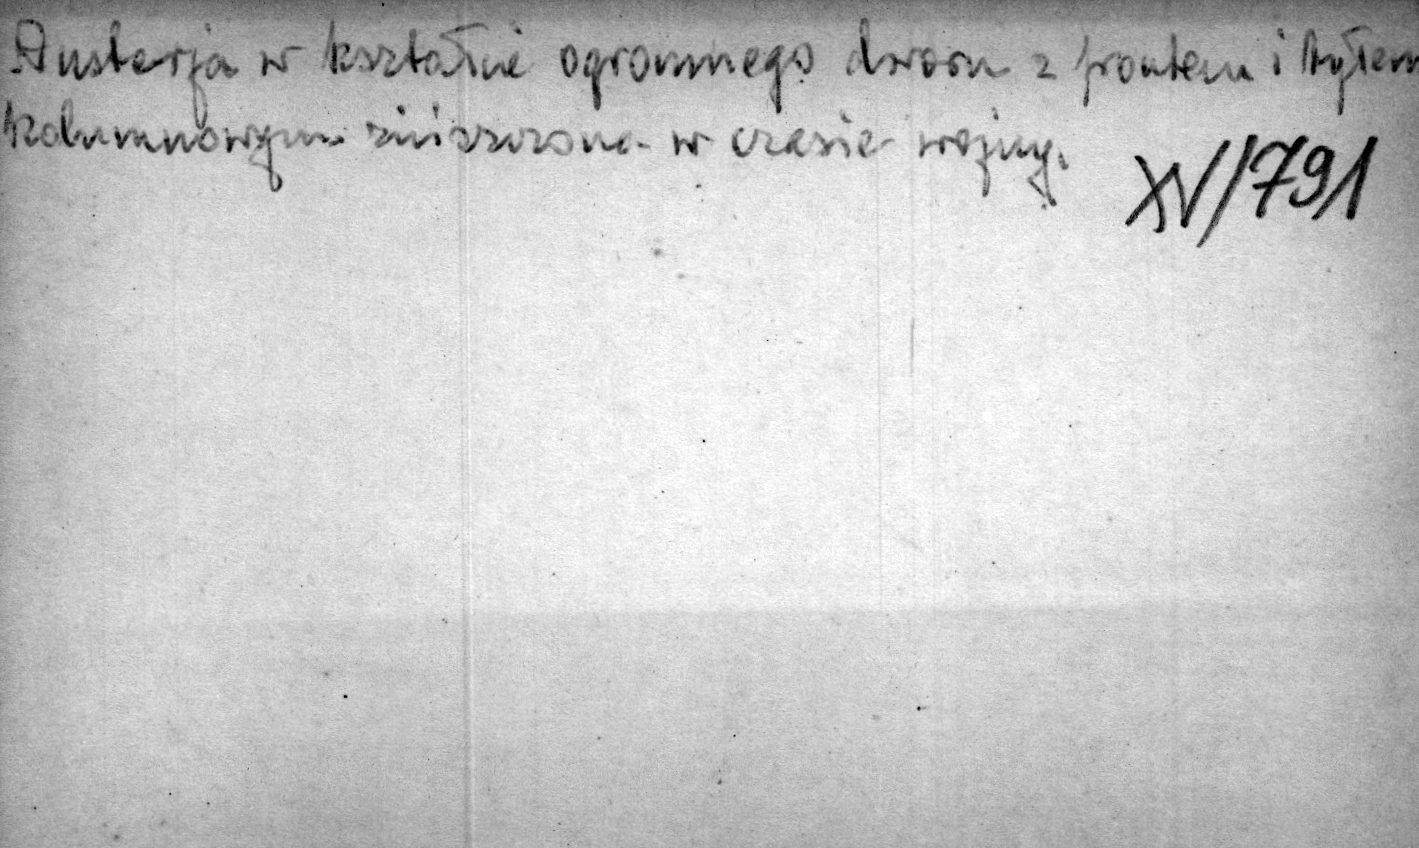 Austerja w kształcie ogromnego dworu z frontem i tyłem
kolumnowym zniszczona w czasie wojny.
XV/791